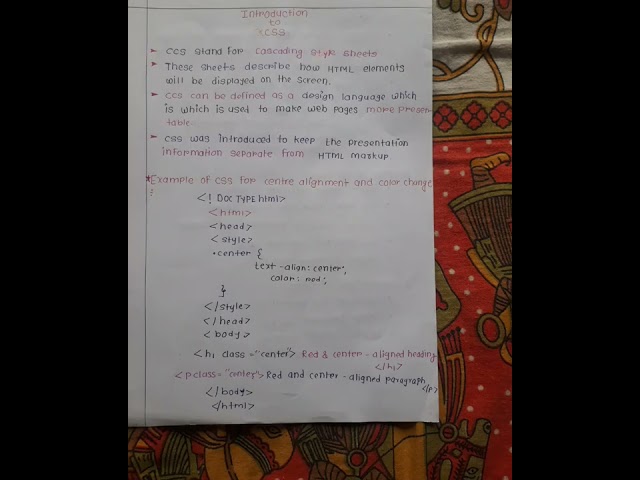 Introduction
to
CSS
➤ CCS stand for Cascading Style Sheets
➤ These sheets describe how HTML elements
will be displayed on the screen.
➤ CCS can be defined as a design language which
is which is used to make web pages more presen-
table.
➤ CSS was introduced to keep the presentation
information separate from HTML markup.
*Example of CSS for centre alignment and color change
:
<! DOC TYPE html>
<html>
<head>
<style>
.center {
text-align: center;
color: red;
}
</style>
</head>
<body>
<h1 class="center"> Red & center-aligned heading
</h1>
<p class="center"> Red and center-aligned paragraph
</p>
</body>
</html>